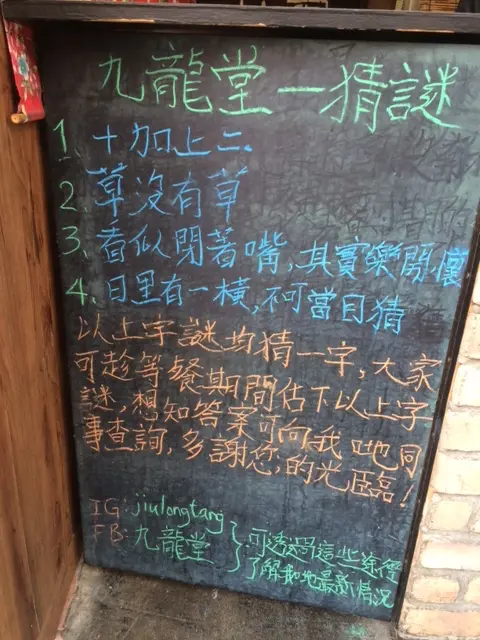 九龍堂一猜謎
1. 十加上二
2. 草沒有草
3. 看似閉著嘴,其實樂開懷
4. 日里有一橫,不可當日猜
以上字謎均猜一字,大家
可趁等餐期間估下以上字
謎,想知答案可向我哋同
事查詢,多謝您,的光臨!
IG: jiulongtang
FB: 九龍堂
可透過這些途徑
了解我地最新情況